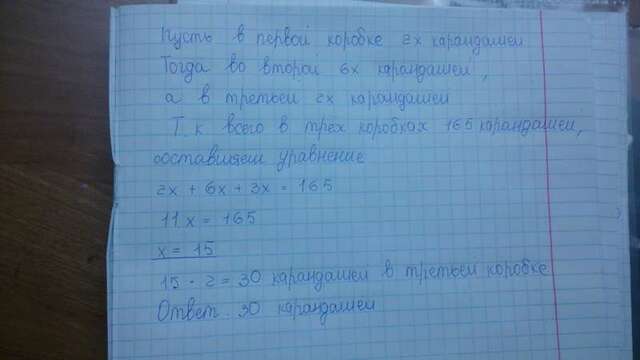 Пусть в первой коробке 2x карандашей
Тогда во второй 6x карандашей,
а в третьей 2x карандашей
Т. к всего в трех коробках 165 карандашей,
составляем уравнение
2x + 6x + 3x = 165
11x = 165
x = 15
15 · 2 = 30 карандашей в третьей коробке
Ответ. 30 карандашей